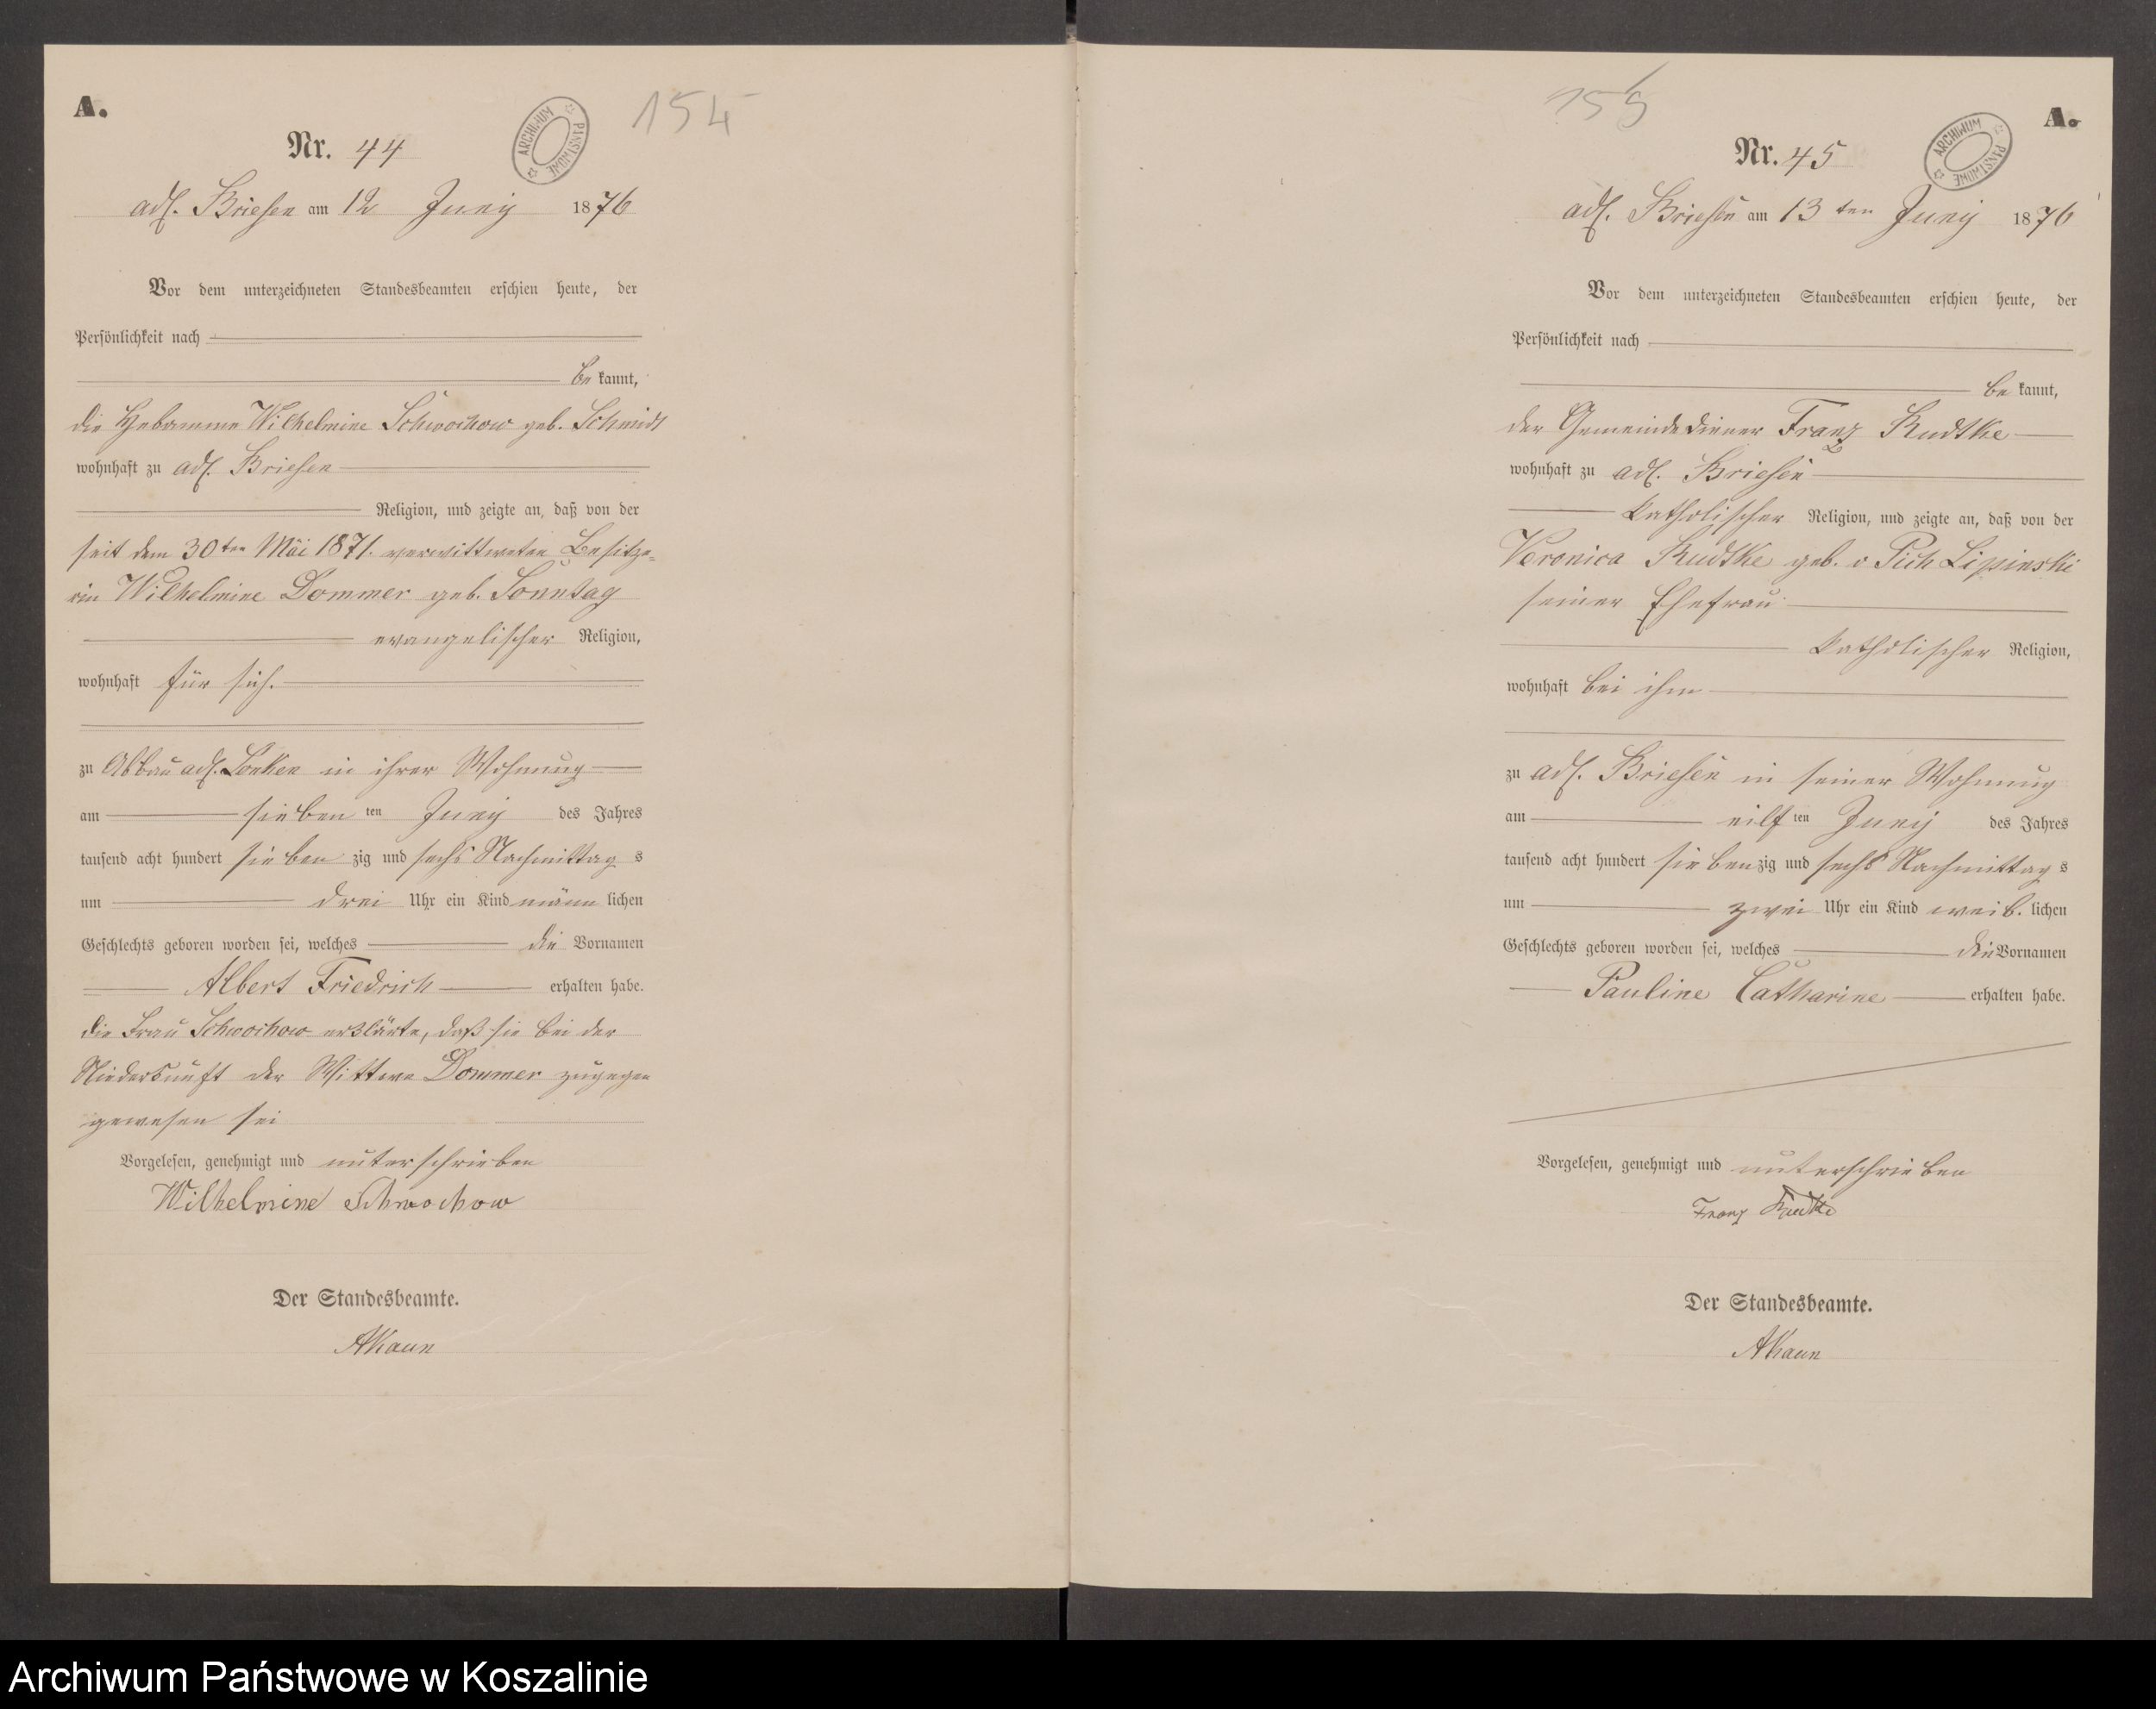 A.
154
Nr. 44
ARCHIWUM PAŃSTWOWE
adl. Briesen am 12 Juny 1876
Vor dem unterzeichneten Standesbeamten erschien heute, der
Persönlichkeit nach
be kannt,
die Hebamme Wilhelmine Schwochow geb. Schmidt
wohnhaft zu adl. Briesen
Religion, und zeigte an, daß von der
seit dem 30ten Mai 1871. verwittweten Besitze-
rin Wilhelmine Dommer geb. Sonntag
evangelischer Religion,
wohnhaft für sich.
zu Abbau adl. Lonken in ihrer Wohnung
am sieben ten Juny des Jahres
tausend acht hundert sieben zig und sechs Nachmittag s
um drei Uhr ein Kind männ lichen
Geschlechts geboren worden sei, welches die Vornamen
Albert Friedrich erhalten habe.
die Frau Schwochow erklärte, daß sie bei der
Niederkunft der Wittwe Dommer zugegen
gewesen sei
Vorgelesen, genehmigt und unterschrieben
Wilhelmine Schwochow
Der Standesbeamte.
AKaun
155
A.
Nr. 45
ARCHIWUM PAŃSTWOWE
adl. Briesen am 13 ten Juny 1876
Vor dem unterzeichneten Standesbeamten erschien heute, der
Persönlichkeit nach
be kannt,
der Gemeindediener Franz Rudtke
wohnhaft zu adl. Briesen
katholischer Religion, und zeigte an, daß von der
Veronica Rudtke geb. v Pich Lipinski
seiner Ehefrau
katholischer Religion,
wohnhaft bei ihm
zu adl. Briesen in seiner Wohnung
am eilf ten Juny des Jahres
tausend acht hundert sieben zig und sechs Nachmittag s
um zwei Uhr ein Kind weib. lichen
Geschlechts geboren worden sei, welches die Vornamen
Pauline Catharine erhalten habe.
Vorgelesen, genehmigt und unterschrieben
Franz Rudtke
Der Standesbeamte.
AKaun
Archiwum Państwowe w Koszalinie